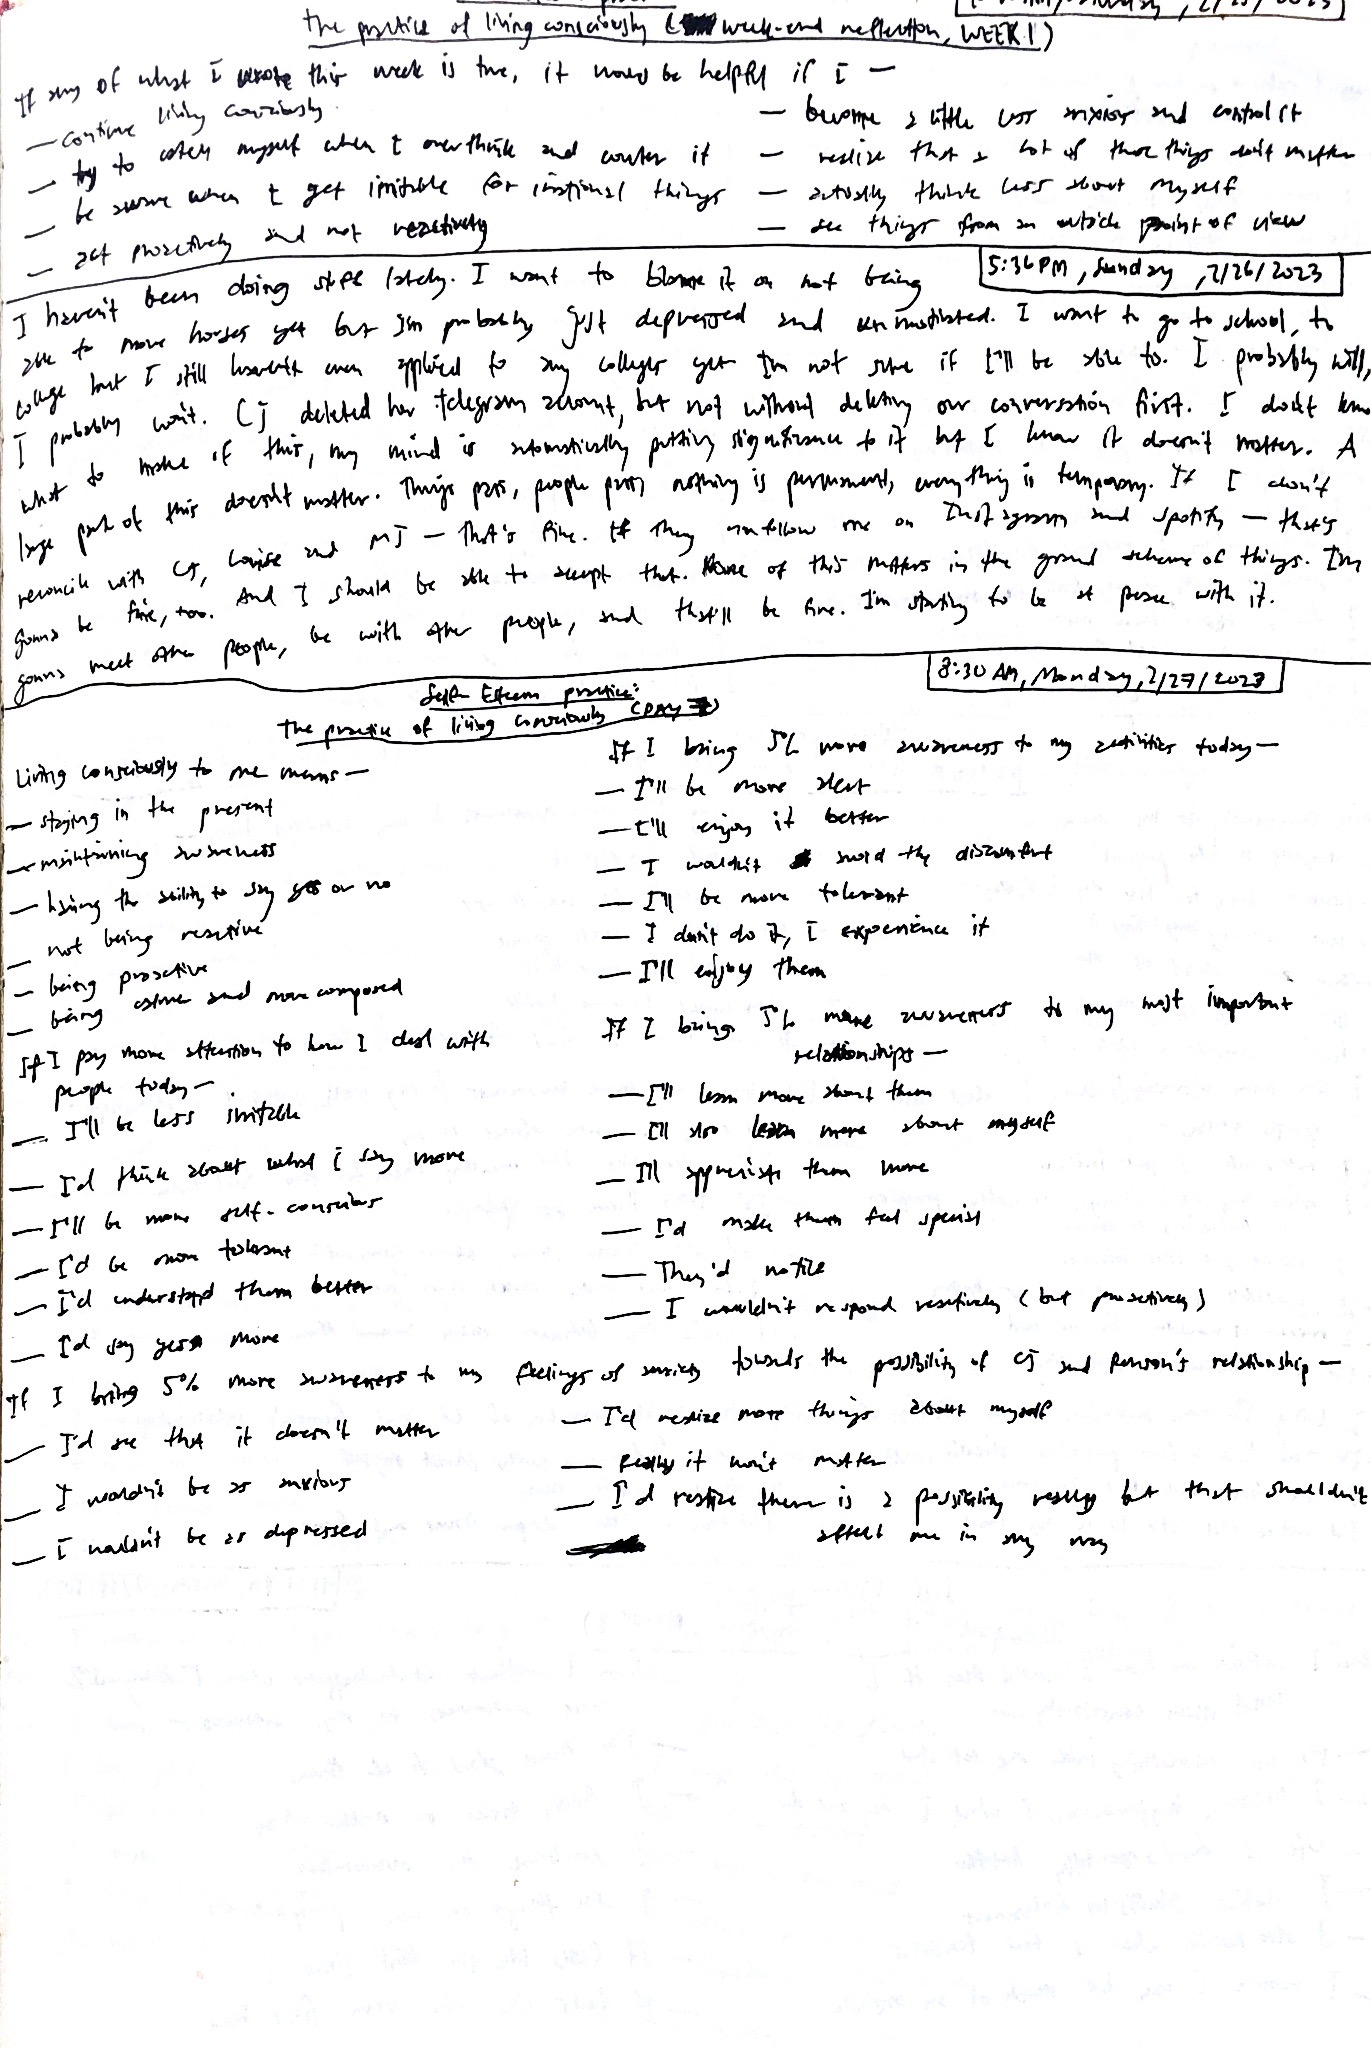 The practice of living consciously (week-end reflection, WEEK 1)
If any of what I wrote this week is true, it would be helpful if I —
— continue living consciously.
— try to catch myself when I overthink and counter it
— be aware when I get irritable for irrational things
— act proactively and not reactively
— become a little less anxious and control it
— realize that a lot of these things don't matter
— actually think less about myself
— see things from an outside point of view
5:36 PM, Sunday, 2/26/2023
I haven't been doing stuff lately. I want to blame it on not being
able to move houses yet but I'm probably just depressed and unmotivated. I want to go to school, to
college but I still haven't even applied to any colleges yet I'm not sure if I'll be able to. I probably will,
I probably won't. CJ deleted her telegram account, but not without deleting our conversation first. I don't know
what to make of this, my mind is automatically putting significance to it but I know it doesn't matter. A
large part of this doesn't matter. Things pass, people pass, nothing is permanent, everything is temporary. If I don't
reconcile with CJ, Louise and MJ — that's fine. If they unfollow me on Instagram and spotify — that's
gonna be fine, too. And I should be able to accept that. None of this matters in the grand scheme of things. I'm
gonna meet other people, be with other people, and that'll be fine. I'm starting to be at peace with it.
8:30 AM, Monday, 2/27/2023
Self-Esteem practice:
The practice of living consciously (DAY 7)
Living consciously to me means —
— staying in the present
— maintaining awareness
— having the ability to say yes or no
— not being reactive
— being proactive
— being calmer and more composed
If I pay more attention to how I deal with
people today —
— I'll be less irritable
— I'd think about what I say more
— I'll be more self-conscious
— I'd be more tolerant
— I'd understand them better
— I'd say yes more
If I bring 5% more awareness to my activities today —
— I'll be more alert
— I'll enjoy it better
— I wouldn't avoid the discomfort
— I'll be more tolerant
— I don't do it, I experience it
— I'll enjoy them
If I bring 5% more awareness to my most important
relationships —
— I'll learn more about them
— I'll also learn more about myself
— I'll appreciate them more
— I'd make them feel special
— They'd notice
— I wouldn't respond reactively (but proactively)
If I bring 5% more awareness to my feelings of anxiety towards the possibility of CJ and Ranson's relationship —
— I'd see that it doesn't matter
— I wouldn't be as anxious
— I wouldn't be as depressed
— I'd realize more things about myself
— Really it won't matter
— I'd realize there is a possibility really but that shouldn't
affect me in any way